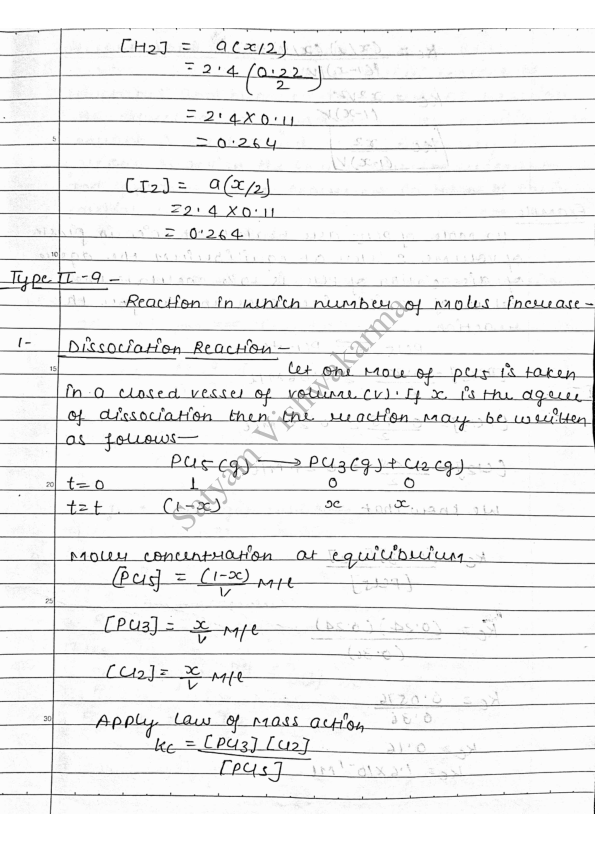 [H2] = a(x/2)
= 2.4 (0.22/2)
= 2.4 X 0.11
= 0.264
5
[I2] = a(x/2)
= 2.4 X 0.11
= 0.264
10
Type II - 9 -
Reaction in which number of moles increase -
1- Dissociation Reaction -
15 Let one mole of PCl5 is taken
in a closed vessel of volume (V). If x is the degree
of dissociation then the reaction may be written
as follows -
PCl5(g) ⟶ PCl3(g) + Cl2(g)
20 t=0 1 0 0
t=t (1-x) x x
Moler concentration at equilibrium
[PCl5] = (1-x)/V M/l
25
[PCl3] = x/V M/l
[Cl2] = x/V M/l
30 Apply law of mass action
Kc = [PCl3] [Cl2]
[PCl5]
Satyam Vishwakarma